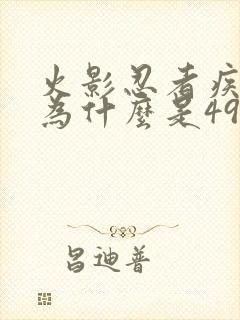 火影忍者疾
為什麼是49
昌迪普